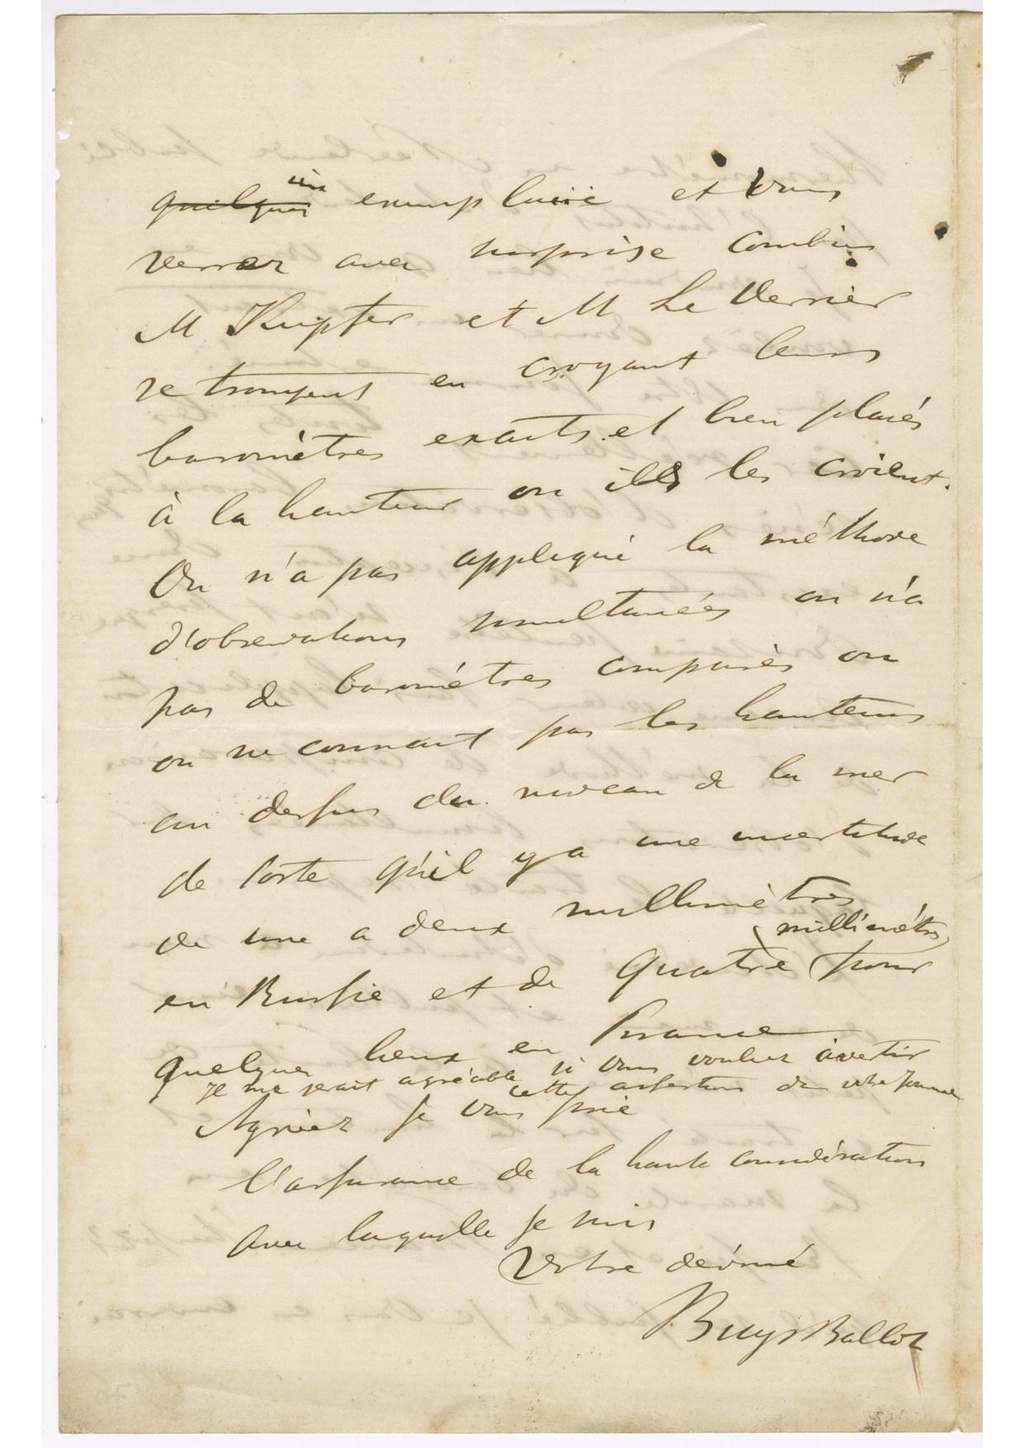 quelques un exemplaire et vous
verrez avec surprise combien
M Kupfer et M Le Verrier
se trompent en croyant leurs
baromètres exacts et bien placés
à la hauteur ou ils les croient.
On n'a pas appliqué la méthode
d'observations simultanées on n'a
pas de baromètres comparès ou
on ne connait pas les hauteurs
au dessus du niveau de la mer
de sorte qu'il y a une incertitude
de une a deux millimètres
en Russie et de quatre (millimètres) pour
quelques lieux en France
Je me serait agréable si vous vouliez avertir
cette assertion dans votre Journal
Agréez je vous prie
l'assurance de la haute considération
avec laquelle je suis
Votre dévoué
Buys Ballot